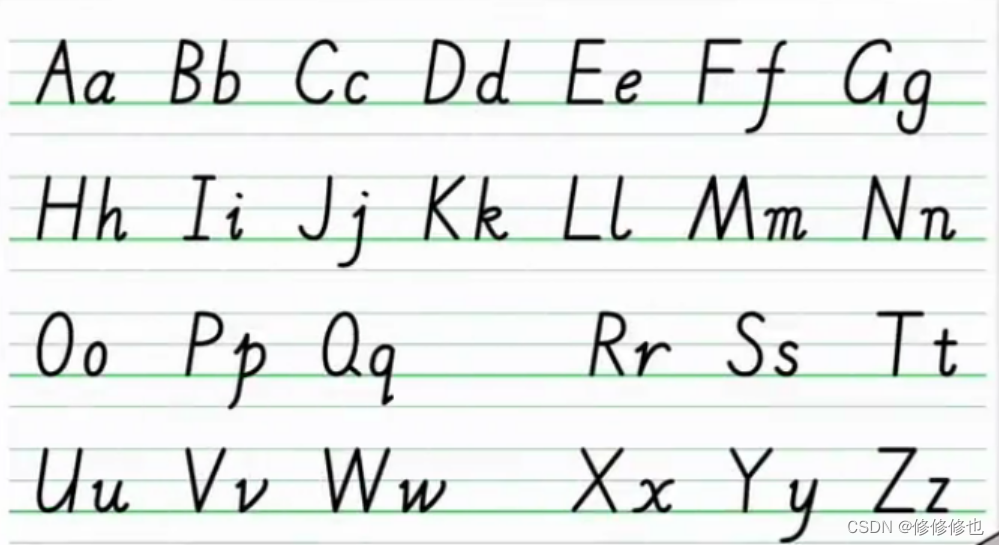 Aa Bb Cc Dd Ee Ff Gg
Hh Ii Jj Kk Ll Mm Nn
Oo Pp Qq Rr Ss Tt
Uu Vv Ww Xx Yy Zz
CSDN @修修修也